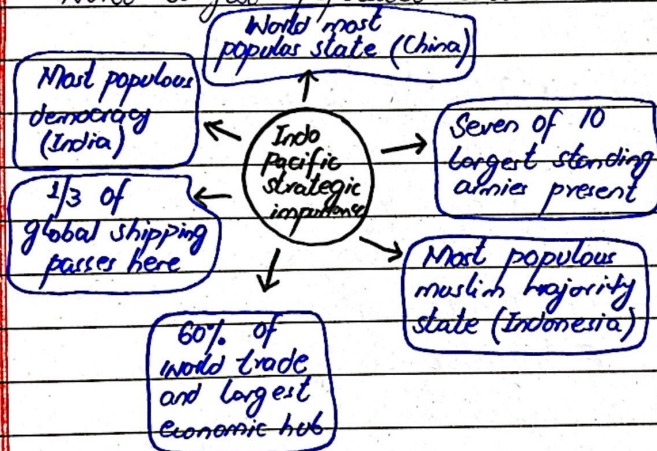 World most
populas state (China)
Most populous
democracy
(India)
Indo
Pacific
strategic
importance
Seven of 10
largest standing
armies present
1/3 of
global shipping
passes here
Most populous
muslim majority
state (Indonesia)
60% of
world trade
and largest
economic hub